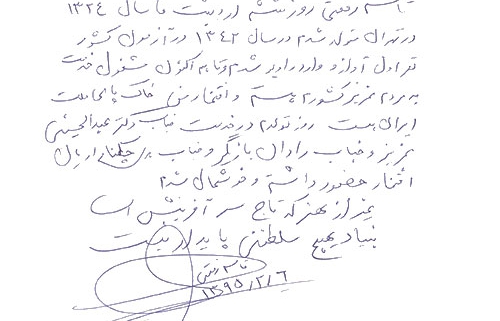 قاسم رفعتی روز ششم اردیبهشت ماه سال ۱۳۲۴
در تهران متولد شدم در سال ۱۳۴۲ در آزمون کشور
نفر اول آواز و وارد رادیو شدم و تا به اکنون مشغول خدمت
به مردم عزیز کشورم هستم و افتخار من خاک پای ملت
ایران هست روز تولدم در خدمت جناب دکتر عبدالحسینی
عزیز و جناب رادان بازیگر و جناب
افتخار حضور داشتم و خوشحال شدم
بجز از هنر که تاج سر آفرینش است
بنیاد هیچ سلطنتی پایدار نیست
قاسم رفعتی
۱۳۹۵/۲/۶